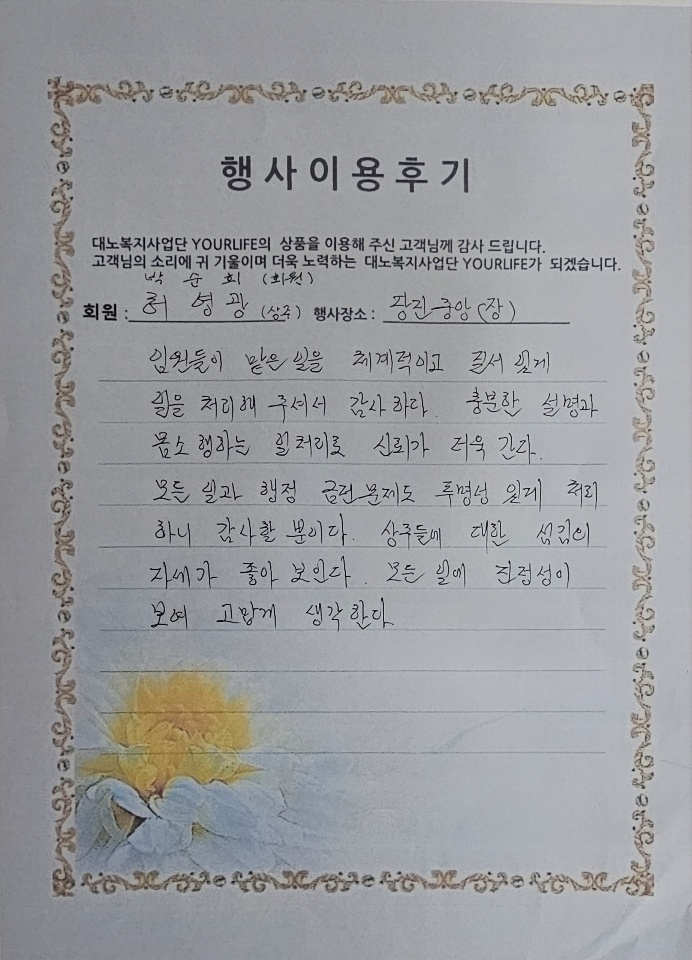 행사이용후기
대노복지사업단 YOURLIFE의 상품을 이용해 주신 고객님께 감사 드립니다.
고객님의 소리에 귀 기울이며 더욱 노력하는 대노복지사업단 YOURLIFE가 되겠습니다.
박 순 희 (회원)
회원 : 허 성 광 (상주) 행사장소 : 광진-중앙(장)
임원들이 맡은 일을 체계적이고 질서 있게
일을 처리해 주셔서 감사하다. 충분한 설명과
몸소 행하는 일처리로 신뢰가 더욱 간다.
모든 일과 행정 금전문제도 투명성 있게 처리
하니 감사할 뿐이다. 상주들에 대한 섬김의
자세가 좋아 보인다. 모든 일에 진정성이
보여 고맙게 생각한다